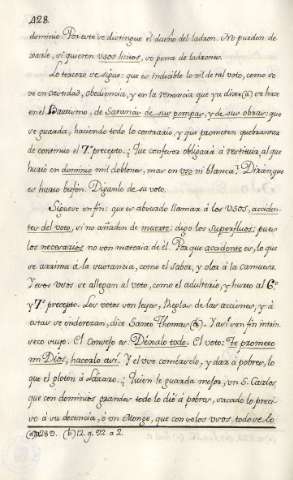 428.
dominio. Por este se distingue el dueño del ladron. No pueden de
xarle, si quieren usos licitos, so pena de ladronio.
Lo tercero se sigue: que es indecible lo vil de tal voto, como se
ve en castidad, obediencia, y en la renuncia que ya dixe (a) se hace
en el Bautismo, de Satanás, de sus pompas, y de sus obras: que
se guarda, haciendo todo lo contrario, y que prometen quebrarse
de continuo el 7.º precepto. ¿Que confesor obligará á restituir, al que
hurtó en dominio mil doblones, mas en uso ni blanca? Dirán que
es hurto bufon. Diganlo de su voto.
Siguese en fin: que es abusado llamar á los usos, acciden-
tes del voto, si no añaden de muerte: digo los superfluos: pues
los necesarios no son materia de él. Porque accidente es, lo que
se arrima á la sustancia, como el sabor, y olor á la camuesa.
Y esos usos se allegan al voto, como el adulterio, y hurto al 6.º
y 7.º precepto. Los votos son leyes, Reglas de las acciones, y á
estas se enderezan, dice Santo Thomas (b). Y así son fin intrin-
seco suyo. El Consejo es Dexalo todo. El voto: Te prometo
mi Dios, hacerlo así. Y el uso comiendolo, y dar á pobres, lo
que el gloton á Lázaro. ¿Quien le guarda mejor, un S. Carlos
que con dominios grandes todo lo dió á pobres, sacado lo preci-
so á su decencia, ó un Monge, que con solos usos, todo se lo
(a) n 289. (b) 12. q. 92. a 2.